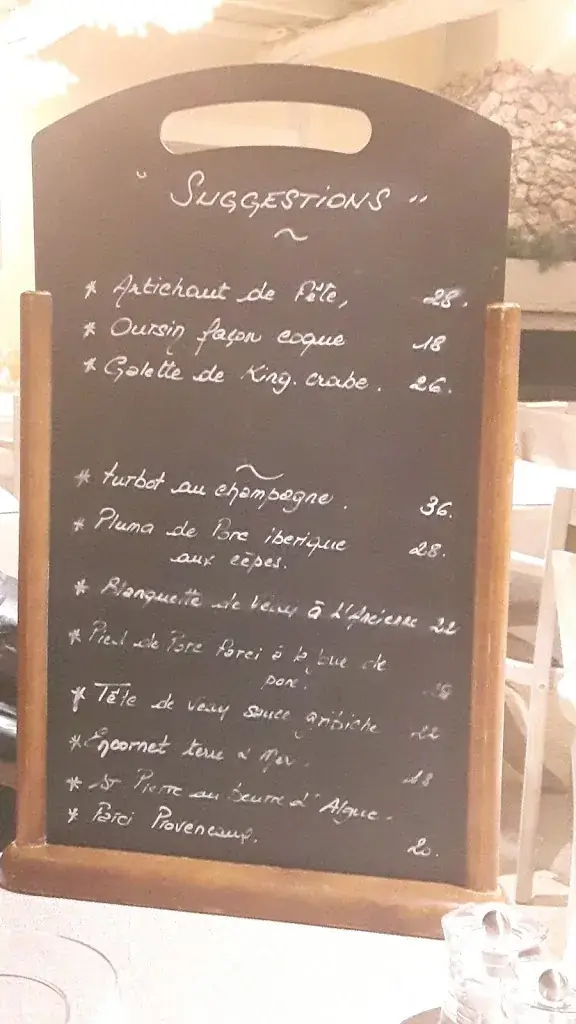 " SUGGESTIONS "
~
* Artichaut de Fête, 28.
* Oursin façon coque 18
* Galette de King. crabe. 26.
~
* turbot au champagne. 36.
* Pluma de Porc iberique 28.
aux cèpes.
* Blanquette de Veau à L'Ancienne 22
* Pied de Porc Farci à la joue de
porc.
* Tête de veau sauce gribiche 22
* Encornet terre & Mer. 28
* St Pierre au beurre d'Algue.
* Farci Provencaux. 20.